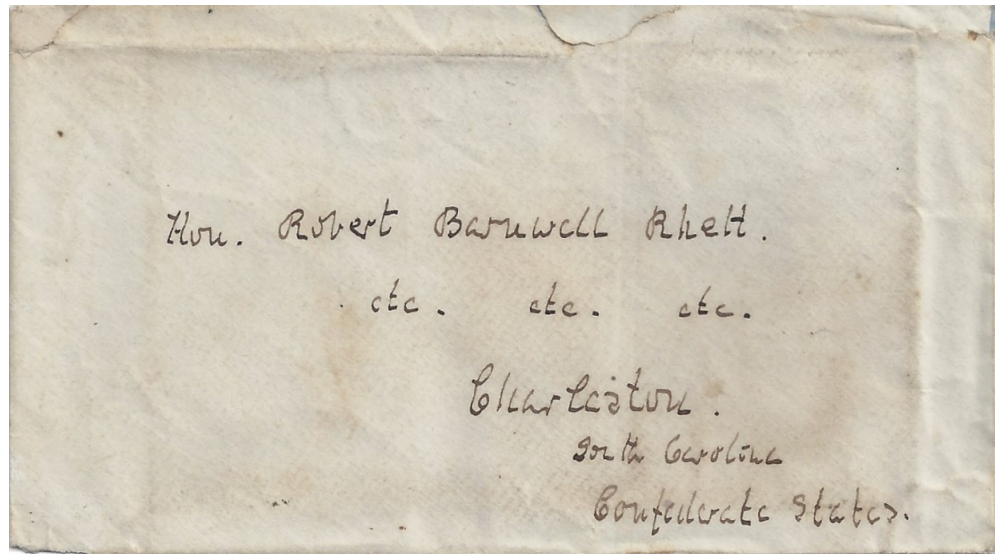 Hon. Robert Barnwell Rhett.
etc. etc. etc.
Charleston.
South Carolina
Confederate States.